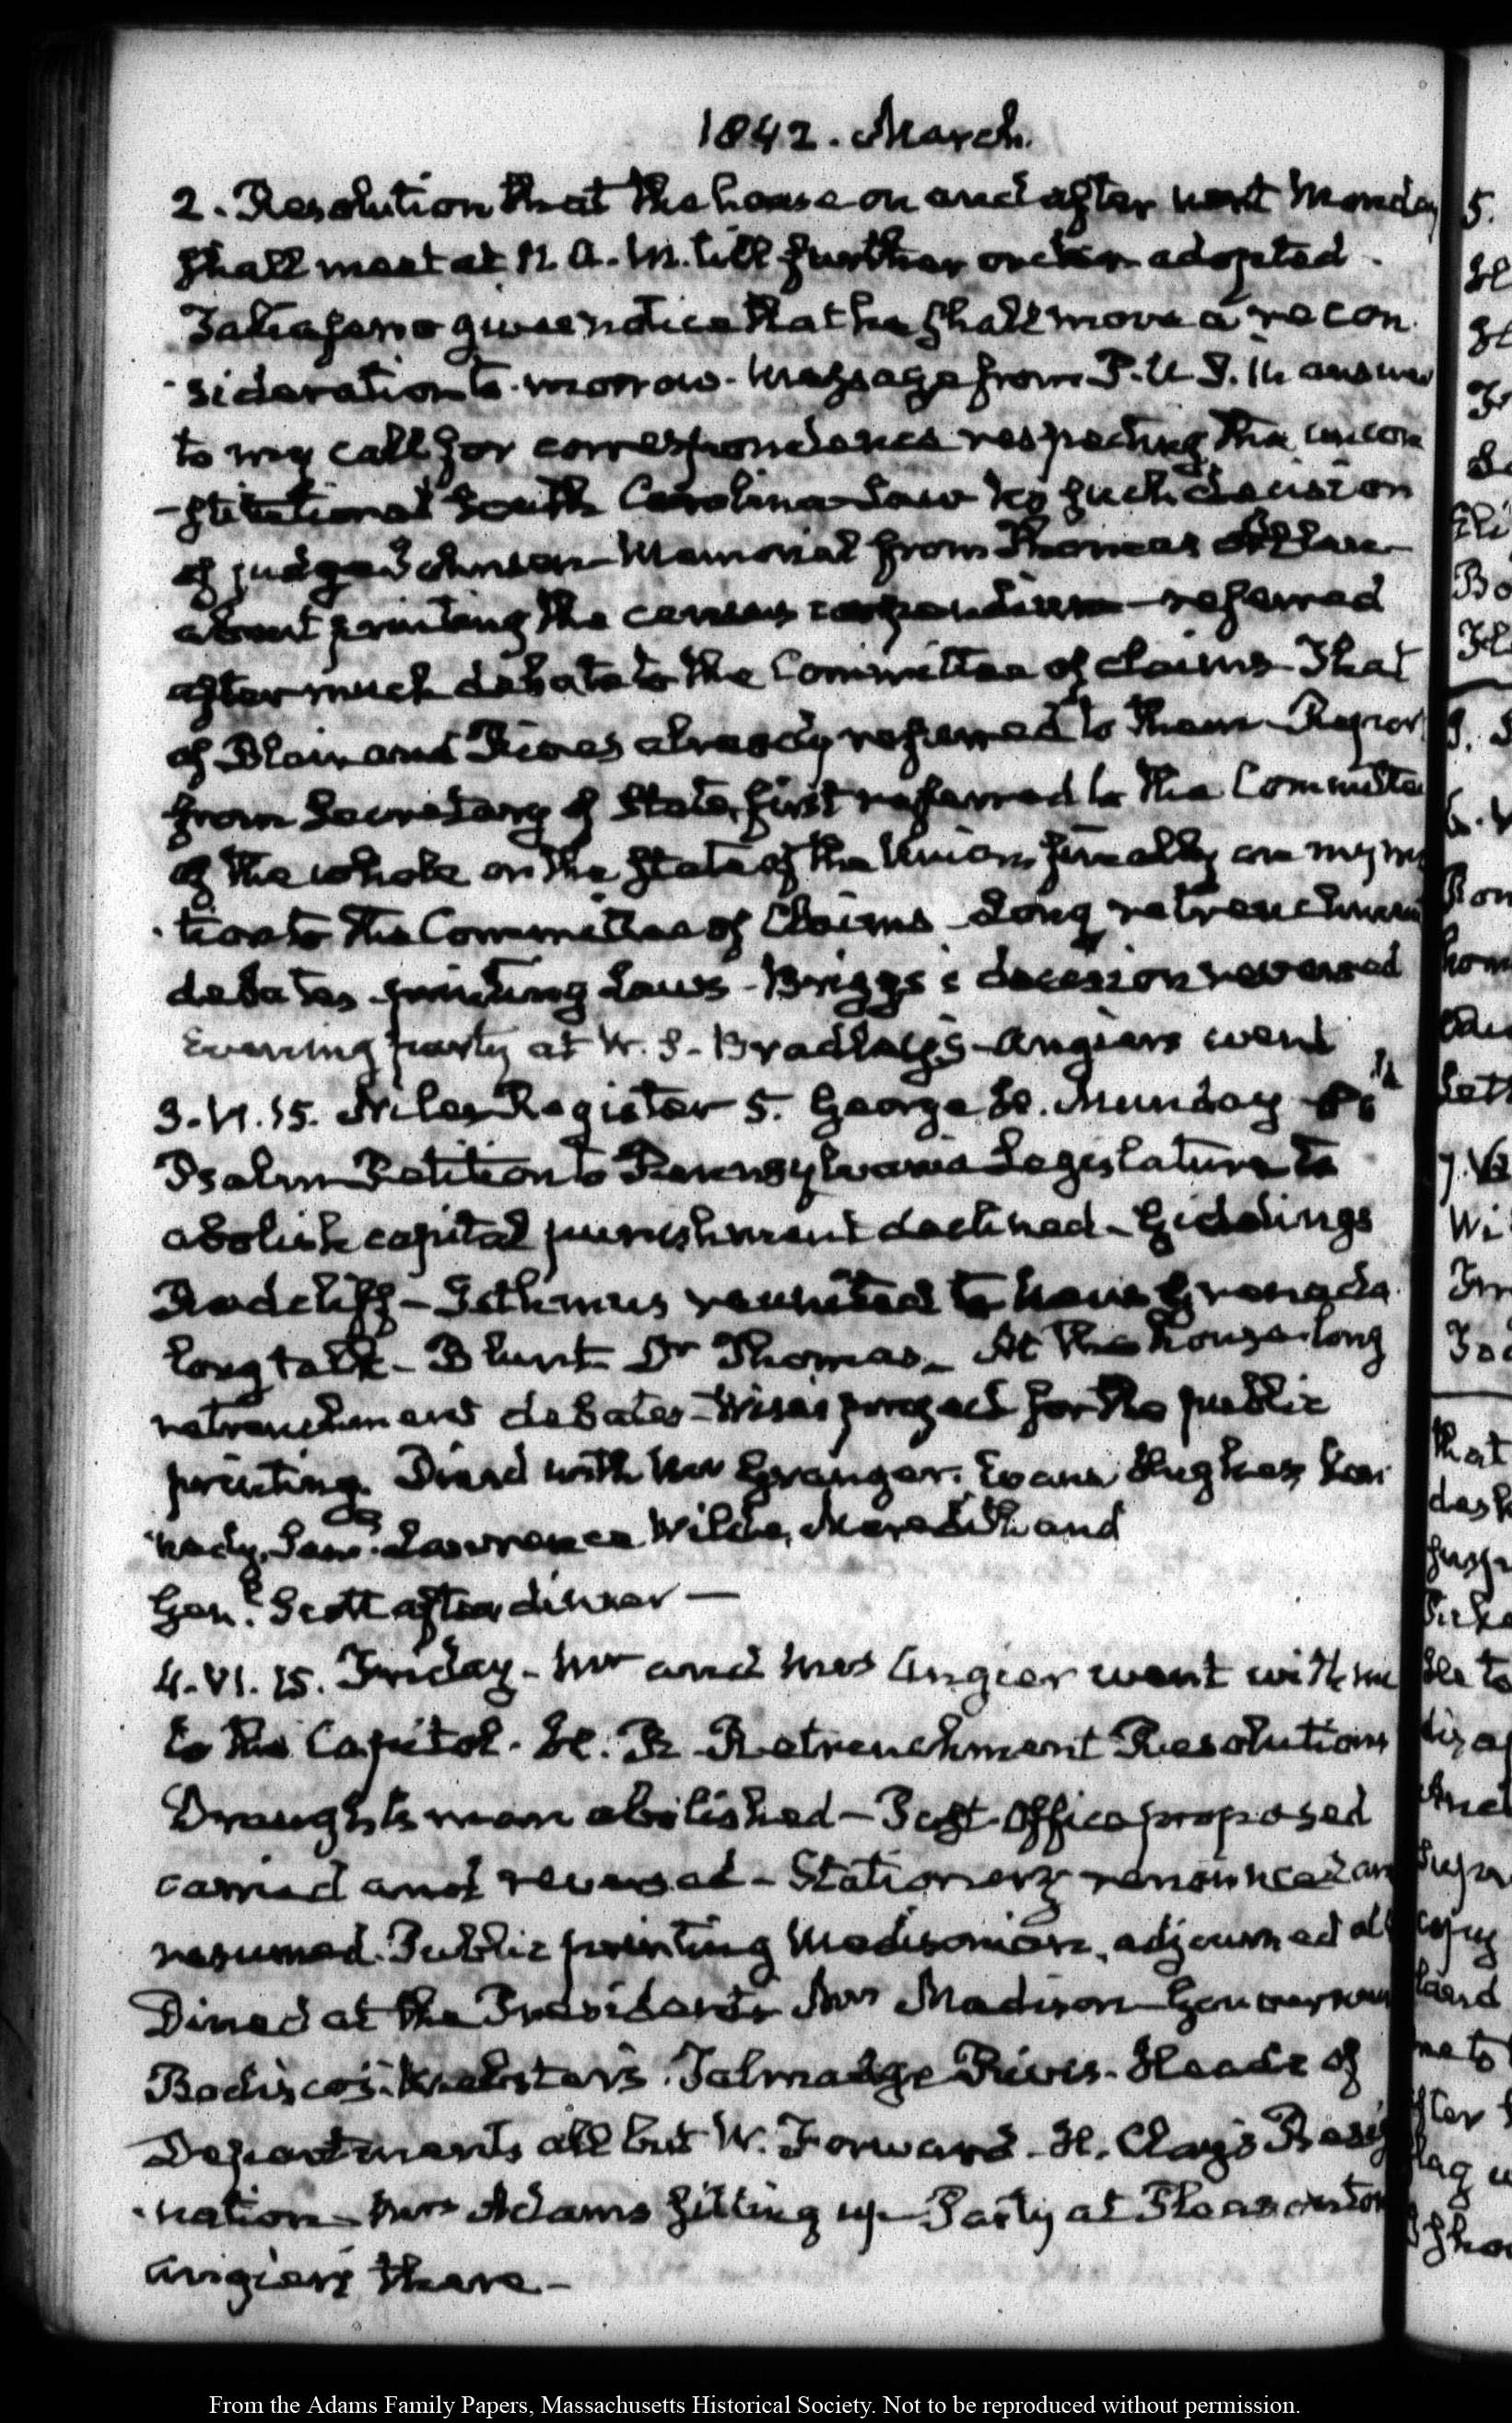 1842. March.
2. Resolution that the house on and after next Monday
shall meet at 11. A.M. till further order adopted.
Taliaferro gives notice that he shall move a recon
-sideration to-morrow. Message from P.U.S. in answer
to my call for correspondence respecting the uncon
-stitutional South Carolina Law No such decision
of judge Johnson Memorial from Thomas Allen
about printing the census compendium referred
after much debate to the Committee of claims That
of Blair and Rives already referred to them Repor
from Secretary of State first referred to the Committee
of the whole on the state of the Union finally on my mo
-tion to the Committee of Claims Long retrenchment
debates printing Laws - Briggs's decision reversed
Evening party at W. A. Bradley's Angiers went
3. VI.15. Niles Register 5. George H. Munday
Psalm Petition to Pennsylvania Legislature to
abolish capital punishment declined - Giddings
Radcliff - Isthmus reunited to New Grenada
long talk - Blunt Dr Thomas - At the house long
retrenchment debates - Wise's project for the public
printing. Dined with Mr Granger. Evans Hughes Ken
-nedy, Lawrence Wilde, Meredith and
Genl. Scott after dinner —
4. VI. 15. Friday - Mr and Mrs Angier went with me
to the Capitol. H. R. Retrenchment Resolutions
Draughtsman abolished - Post-Office proposed
carried and reversed - Stationery renounced an
resumed. Public printing Madisonian, adjourned
Dined at the President's Mrs Madison Gouverneur
Bodisco's. Webster's. Talmadge Rives. Heads of
Departments all but W. Forward. H. Clay's Resig
-nation - Mrs Adams sitting up - Party at Pleasanton
Angiers there -